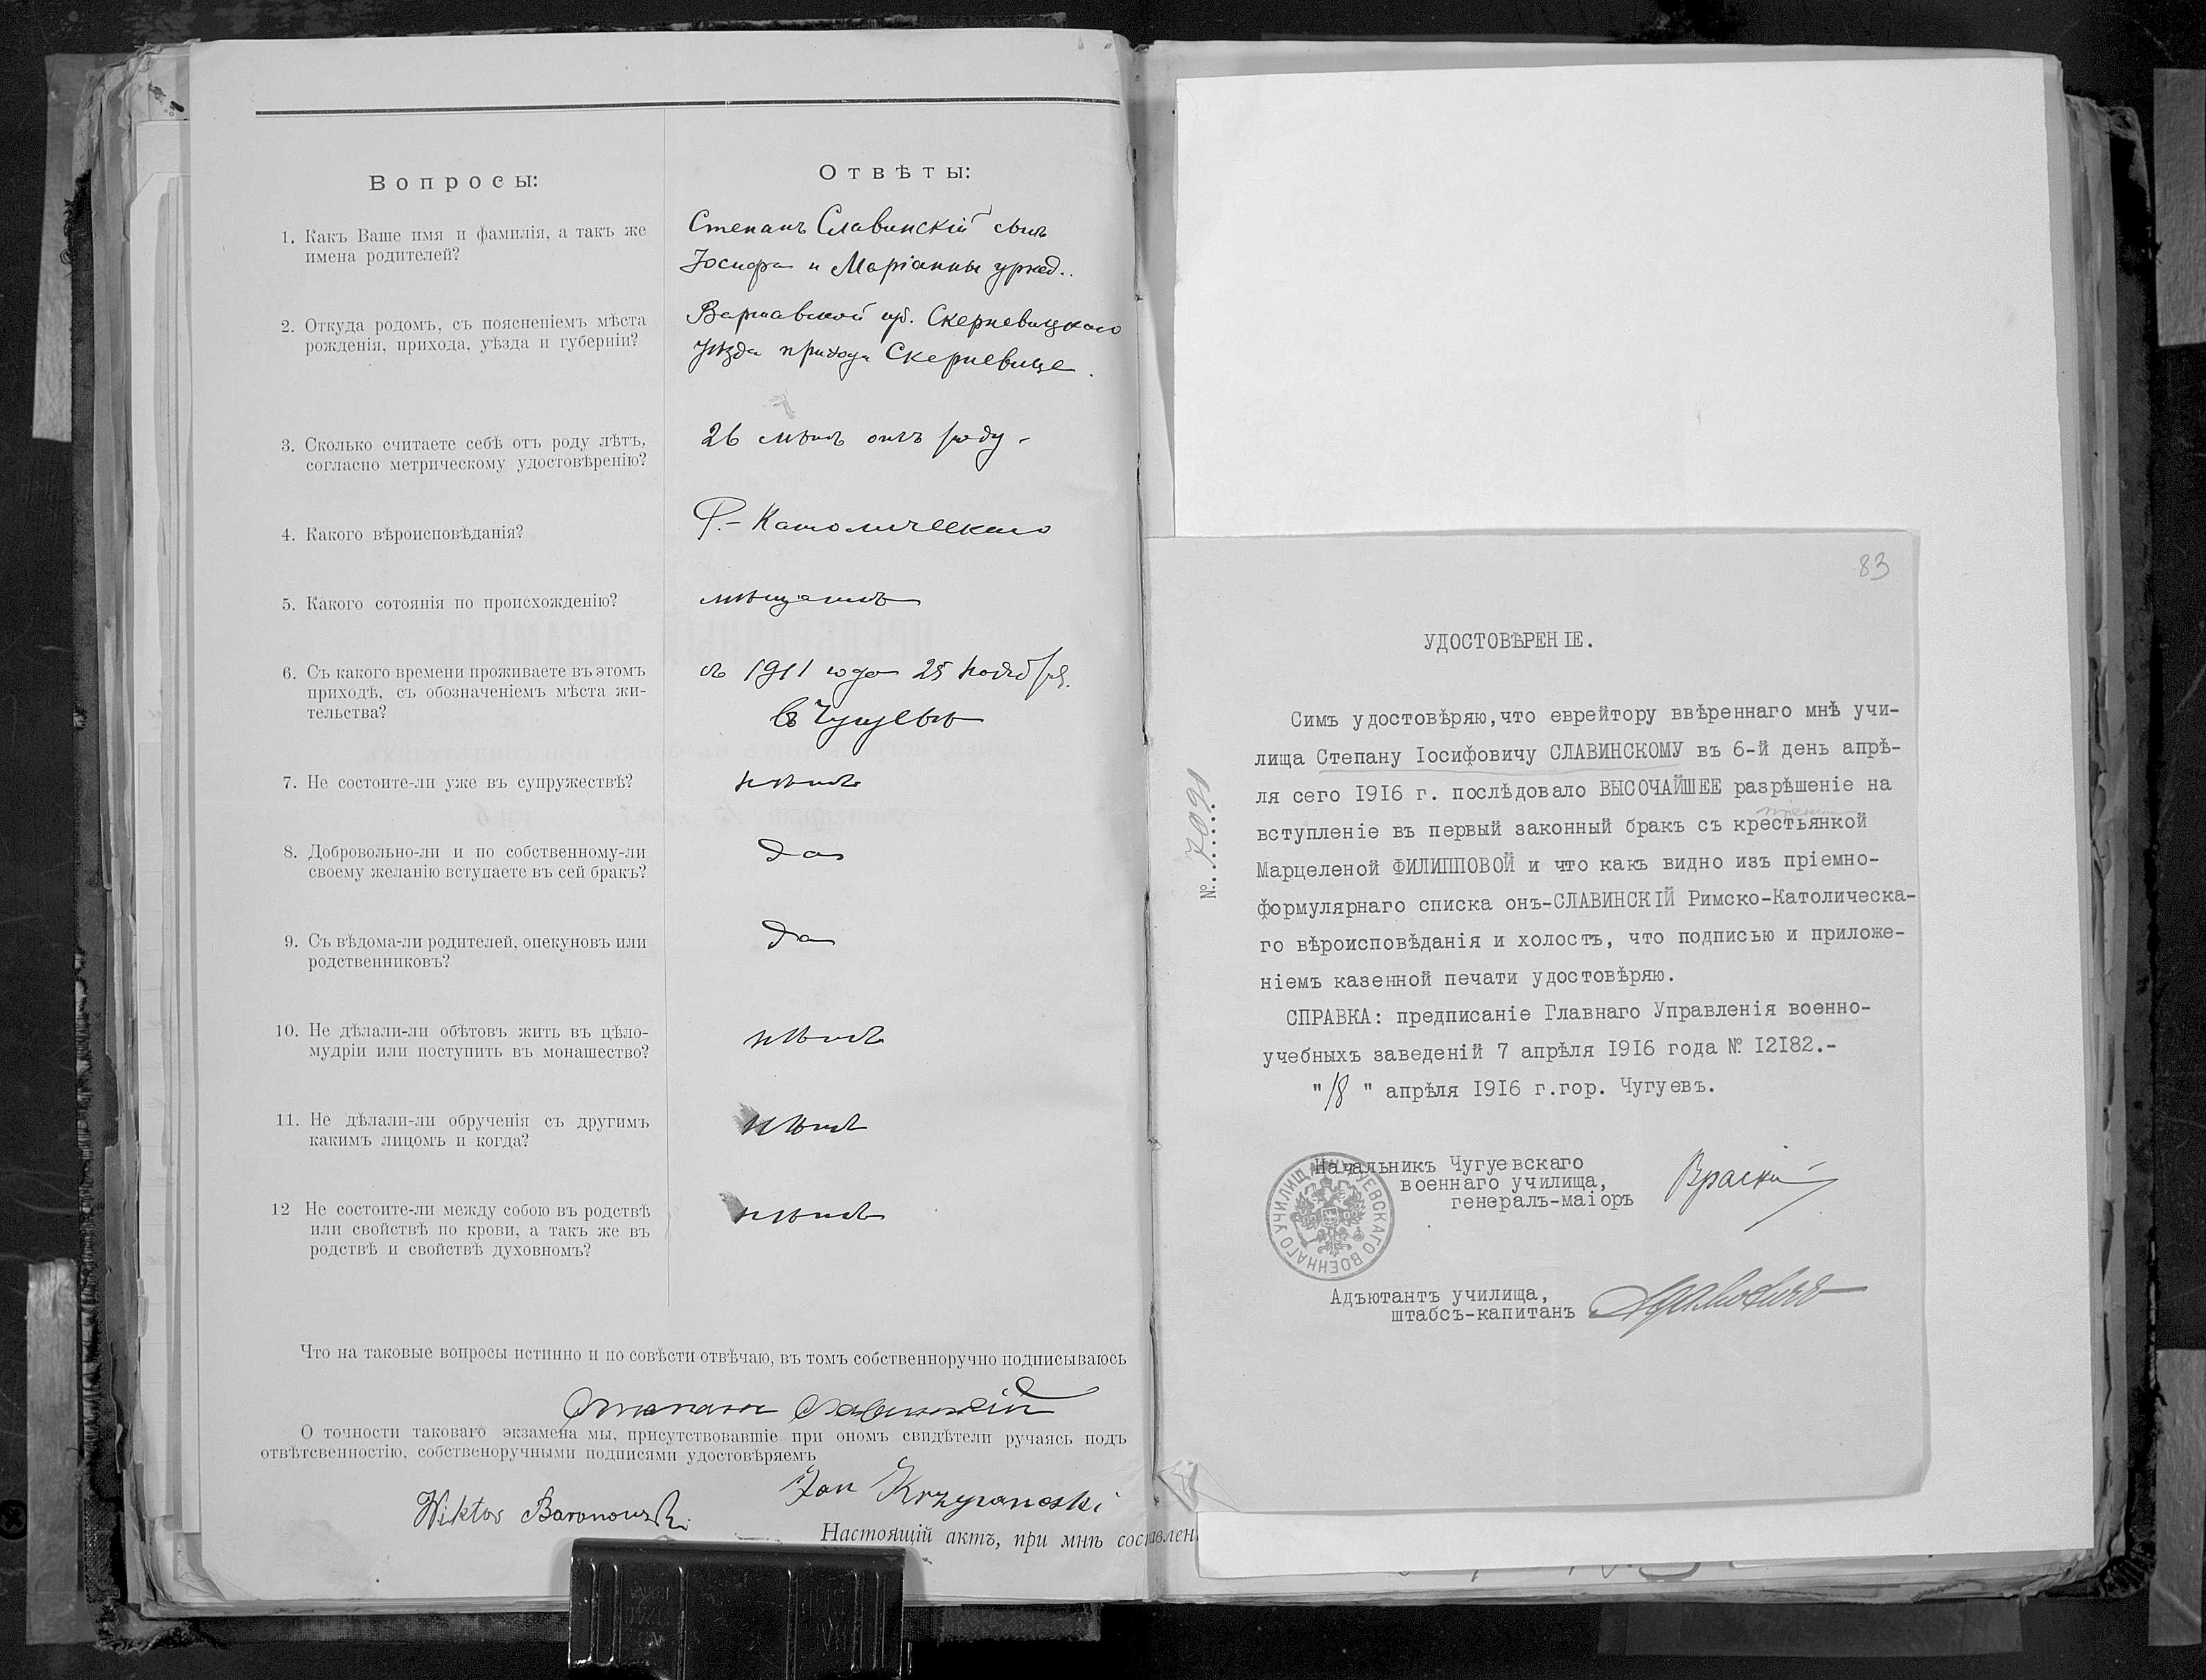 Вопросы:
Отвѣты:
1. Какъ Ваше имя и фамилія, а такъ же
имена родителей?
Степанъ Славинскій сынъ
Іосифа и Маріанны
2. Откуда родомъ, съ поясненіемъ мѣста
рожденія, прихода, уѣзда и губерніи?
Варшавской губ. Скерневицкаго
уѣзда прихода Скерневице.
3. Сколько считаете себѣ отъ роду лѣтъ,
согласно метрическому удостовѣренію?
26 лѣтъ отъ роду
4. Какого вѣроисповѣданія?
Р.-Католическаго
5. Какого сотоянія по происхожденію?
мѣщанинъ
6. Съ какого времени проживаете въ этомъ
приходѣ, съ обозначеніемъ мѣста жи-
тельства?
съ 1911 года 25 Ноября.
въ Чугуевѣ
7. Не состоите-ли уже въ супружествѣ?
нѣтъ
8. Добровольно-ли и по собственному-ли
своему желанію вступаете въ сей бракъ?
да
9. Съ вѣдома-ли родителей, опекуновъ или
родственниковъ?
да
10. Не дѣлали-ли обѣтовъ жить въ цѣло-
мудріи или поступить въ монашество?
нѣтъ
11. Не дѣлали-ли обрученія съ другимъ
какимъ лицомъ и когда?
нѣтъ
12 Не состоите-ли между собою въ родствѣ
или свойствѣ по крови, а такъ же въ
родствѣ и свойствѣ духовномъ?
нѣтъ
Что на таковые вопросы истинно и по совѣсти отвѣчаю, въ томъ собственноручно подписываюсь
Степанъ Славинскій
О точности таковаго экзамена мы, присутствовавшіе при ономъ свидѣтели ручаясь подъ
отвѣтсвенностію, собственоручными подписями удостовѣряемъ
Wiktor Baronowski
Jan Krzyranoski
Настоящій актъ, при мнѣ составлен
83
УДОСТОВѢРЕНІЕ.
№. 7091
Симъ удостовѣряю,что еврейтору ввѣреннаго мнѣ учи-
лища Степану Іосифовичу СЛАВИНСКОМУ въ 6-й день апрѣ-
ля сего 1916 г. послѣдовало ВЫСОЧАЙШЕЕ разрѣшеніе на
вступленіе въ первый законный бракъ съ крестьянкой
Марцеленой ФИЛИППОВОЙ и что какъ видно изъ пріемно-
формулярнаго списка онъ-СЛАВИНСКІЙ Римско-Католическа-
го вѣроисповѣданія и холостъ, что подписью и приложе-
ніемъ казенной печати удостовѣряю.
СПРАВКА: предписаніе Главнаго Управленія военно-
учебныхъ заведеній 7 апрѣля 1916 года № 12182.-
"18" апрѣля 1916 г.гор. Чугуевъ.
Начальникъ Чугуевскаго
военнаго училища,
генералъ-маіоръ
Враскій
ЧУГУЕВСКАГО ВОЕННАГО УЧИЛИЩА
Адъютантъ училища,
штабсъ-капитанъ